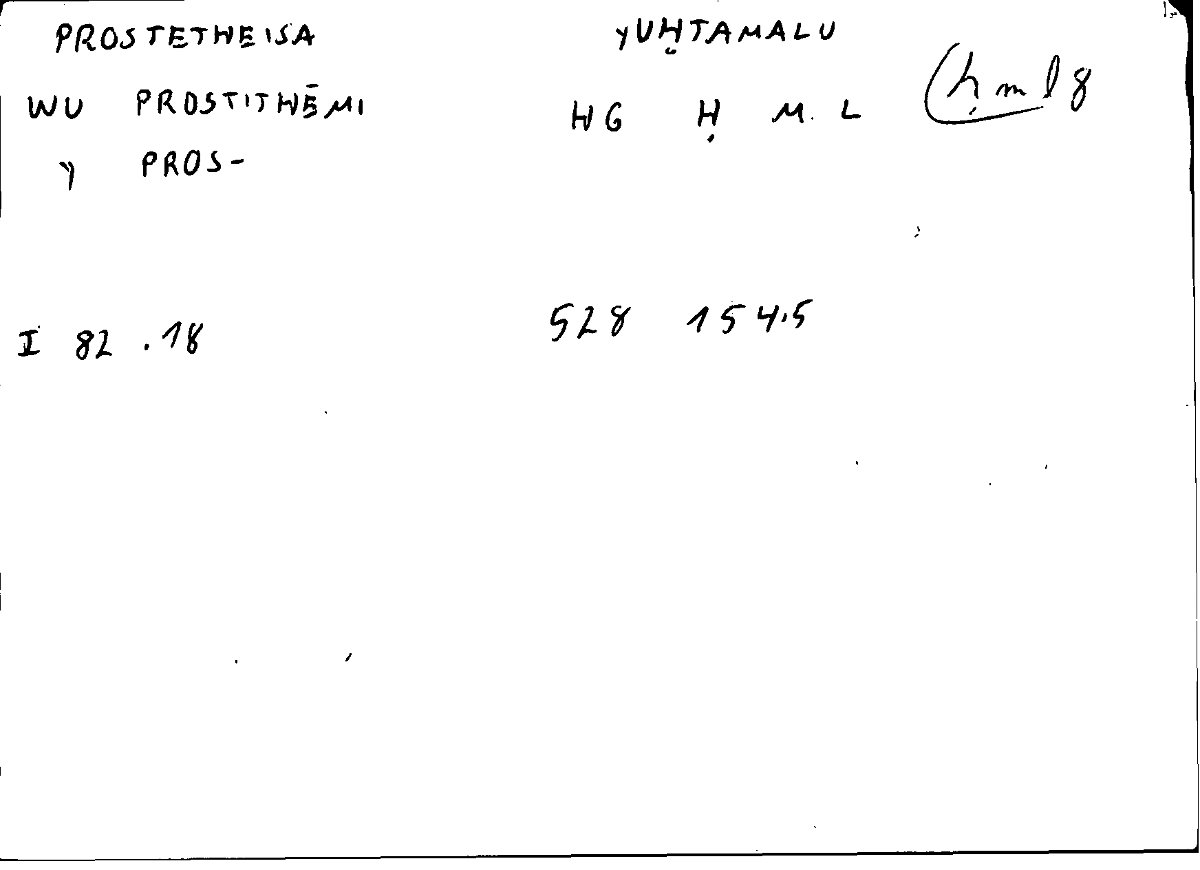 PROSTETHEISA YUḤTAMALU
WU PROSTITHĒMI HG Ḥ M. L ḥml 8
Y PROS-
I 82 .18 528 154.5